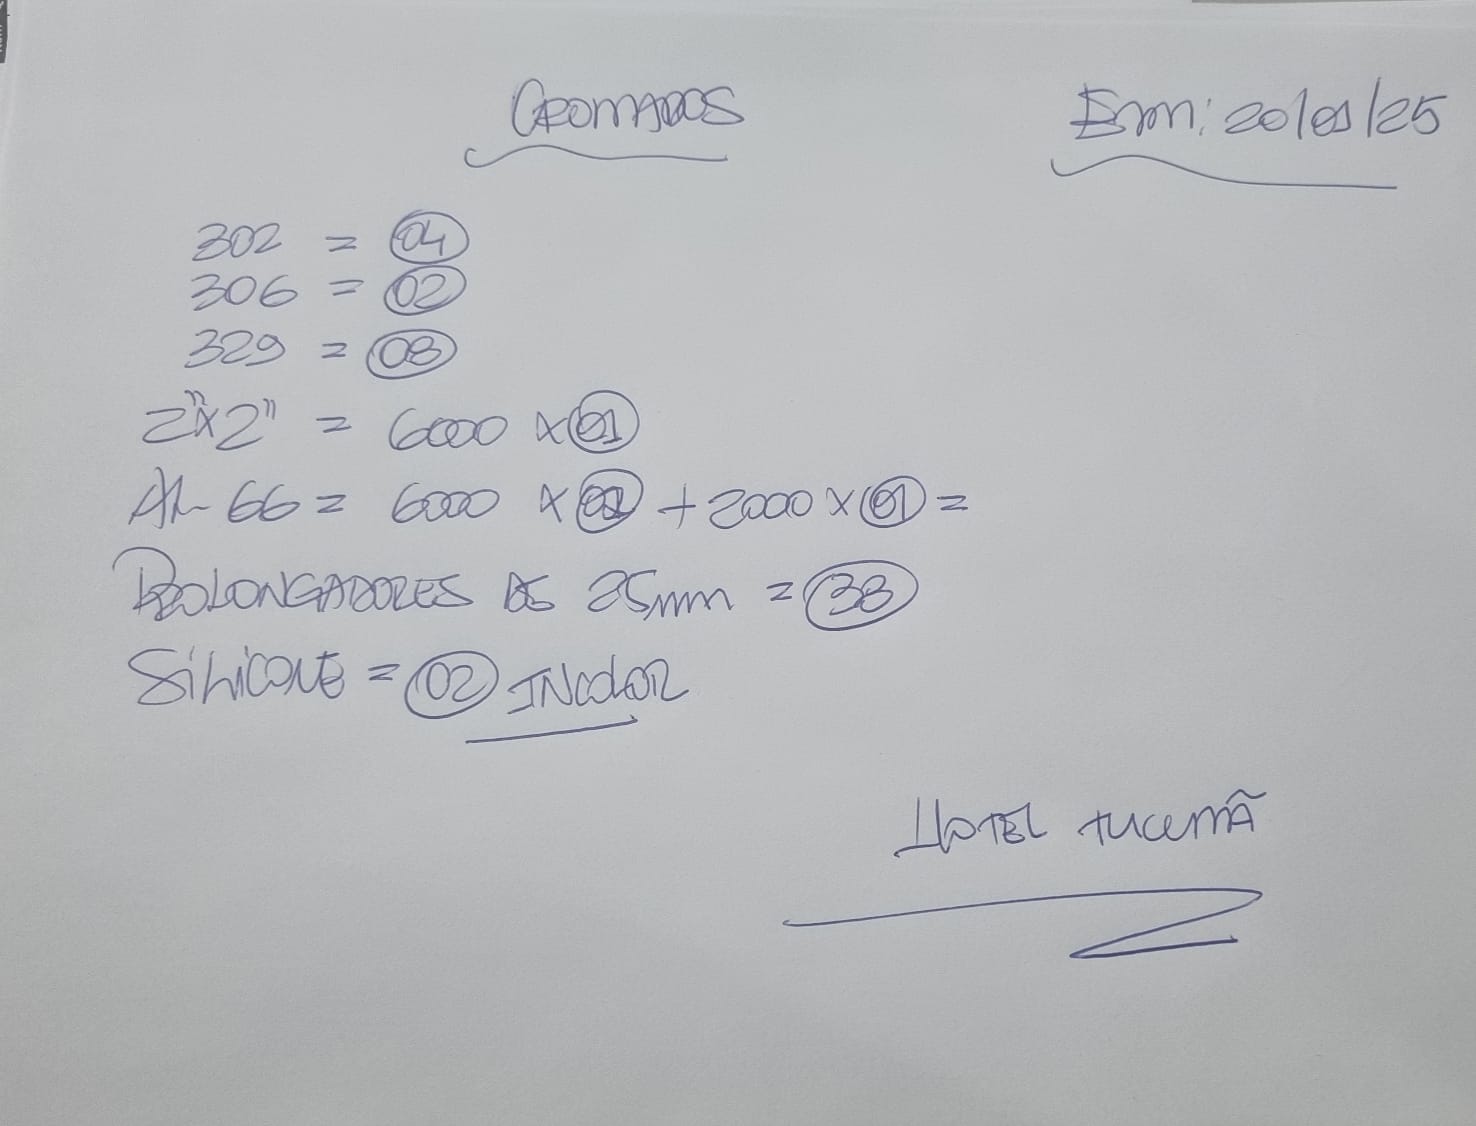 CROMADOS
Em: 20/01/25
302 = 04
306 = 02
329 = 08
2"x2" = 6000 x 01
AL 66 = 6000 x + 2000 x 01 =
PROLONGADORES DE 25mm = 38
SILICONE = 02 INCOLOR
HOTEL TUCUMÃ